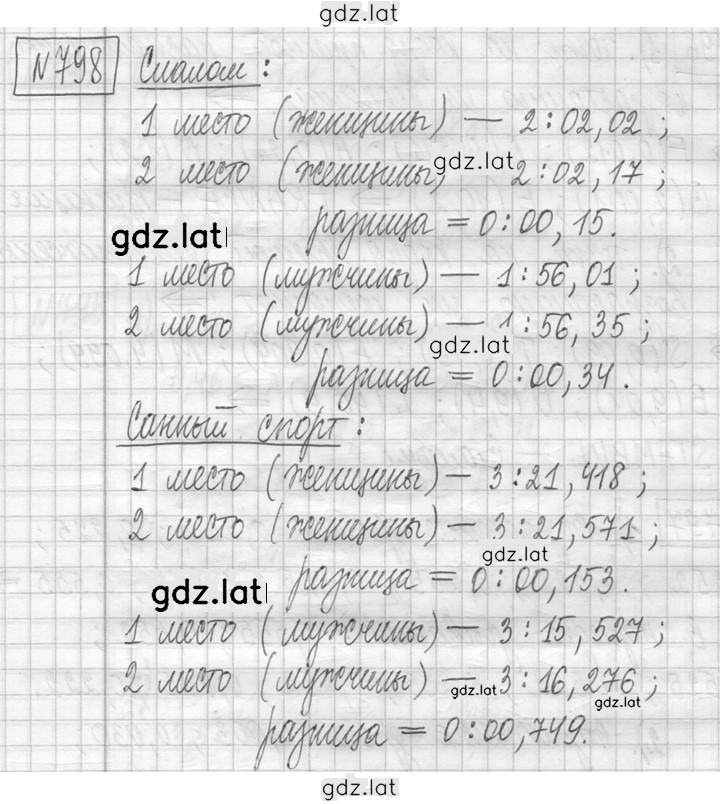 gdz.lat
№798 Слалом:
1 место (женщины) — 2:02,02;
2 место (женщины) — 2:02,17;
gdz.lat
разница = 0:00,15.
gdz.lat
1 место (мужчины) — 1:56,01;
2 место (мужчины) — 1:56,35;
gdz.lat
разница = 0:00,34.
Санный спорт:
1 место (женщины) — 3:21,418;
2 место (женщины) — 3:21,571;
gdz.lat
разница = 0:00,153.
gdz.lat
1 место (мужчины) — 3:15,527;
2 место (мужчины) — 3:16,276;
gdz.lat
gdz.lat
разница = 0:00,749.
gdz.lat